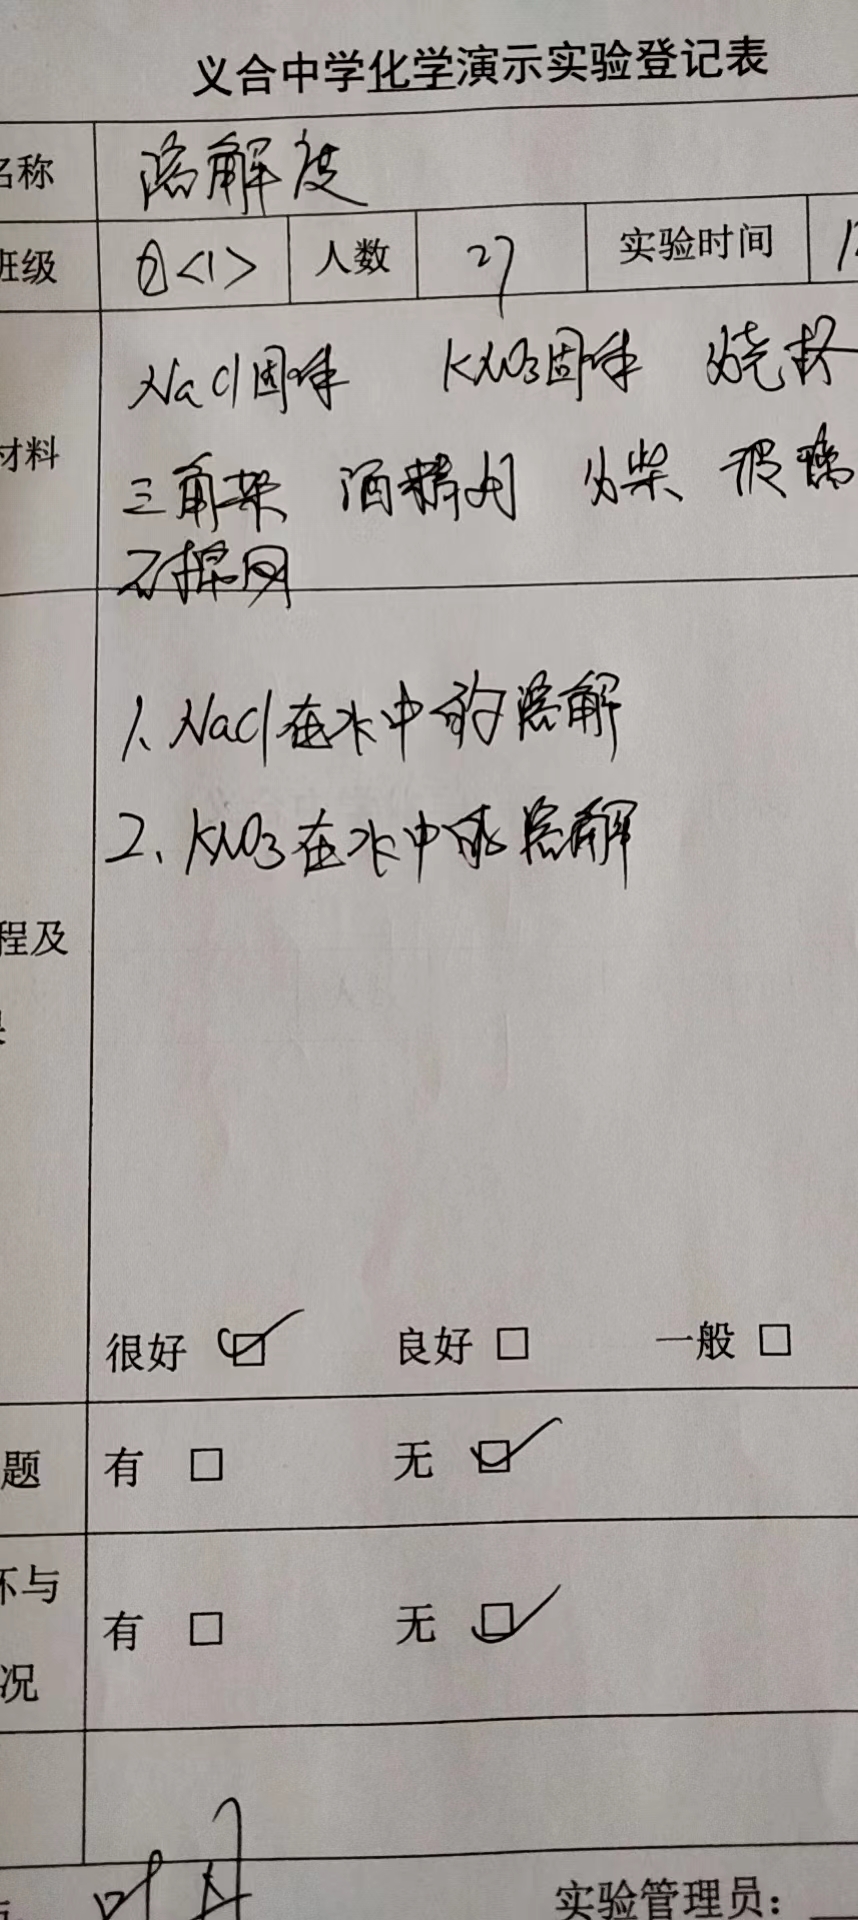 义合中学化学演示实验登记表
名称 溶解度
班级 <1> 人数 27 实验时间
NaCl固体 KNO3固体 烧杯
材料 三角架 酒精灯 火柴 玻璃
石棉网
1、NaCl在水中的溶解
2、KNO3在水中的溶解
程及
很好 ☑ 良好 □ 一般 □
题 有 □ 无 ☑
坏与
有 □ 无 ☑
况
实验管理员：